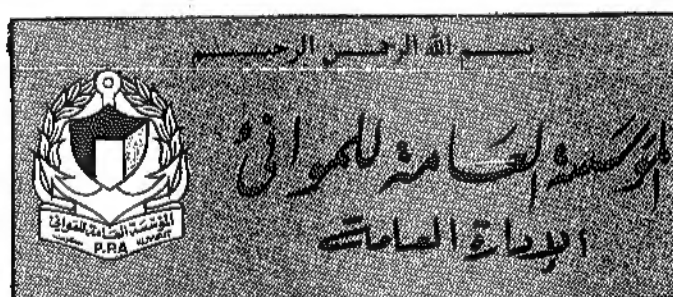 بسم الله الرحمن الرحيم
المؤسسة العامة للموانئ
الإدارة العامة
المؤسسة العامة للموانئ
P.A KUWAIT